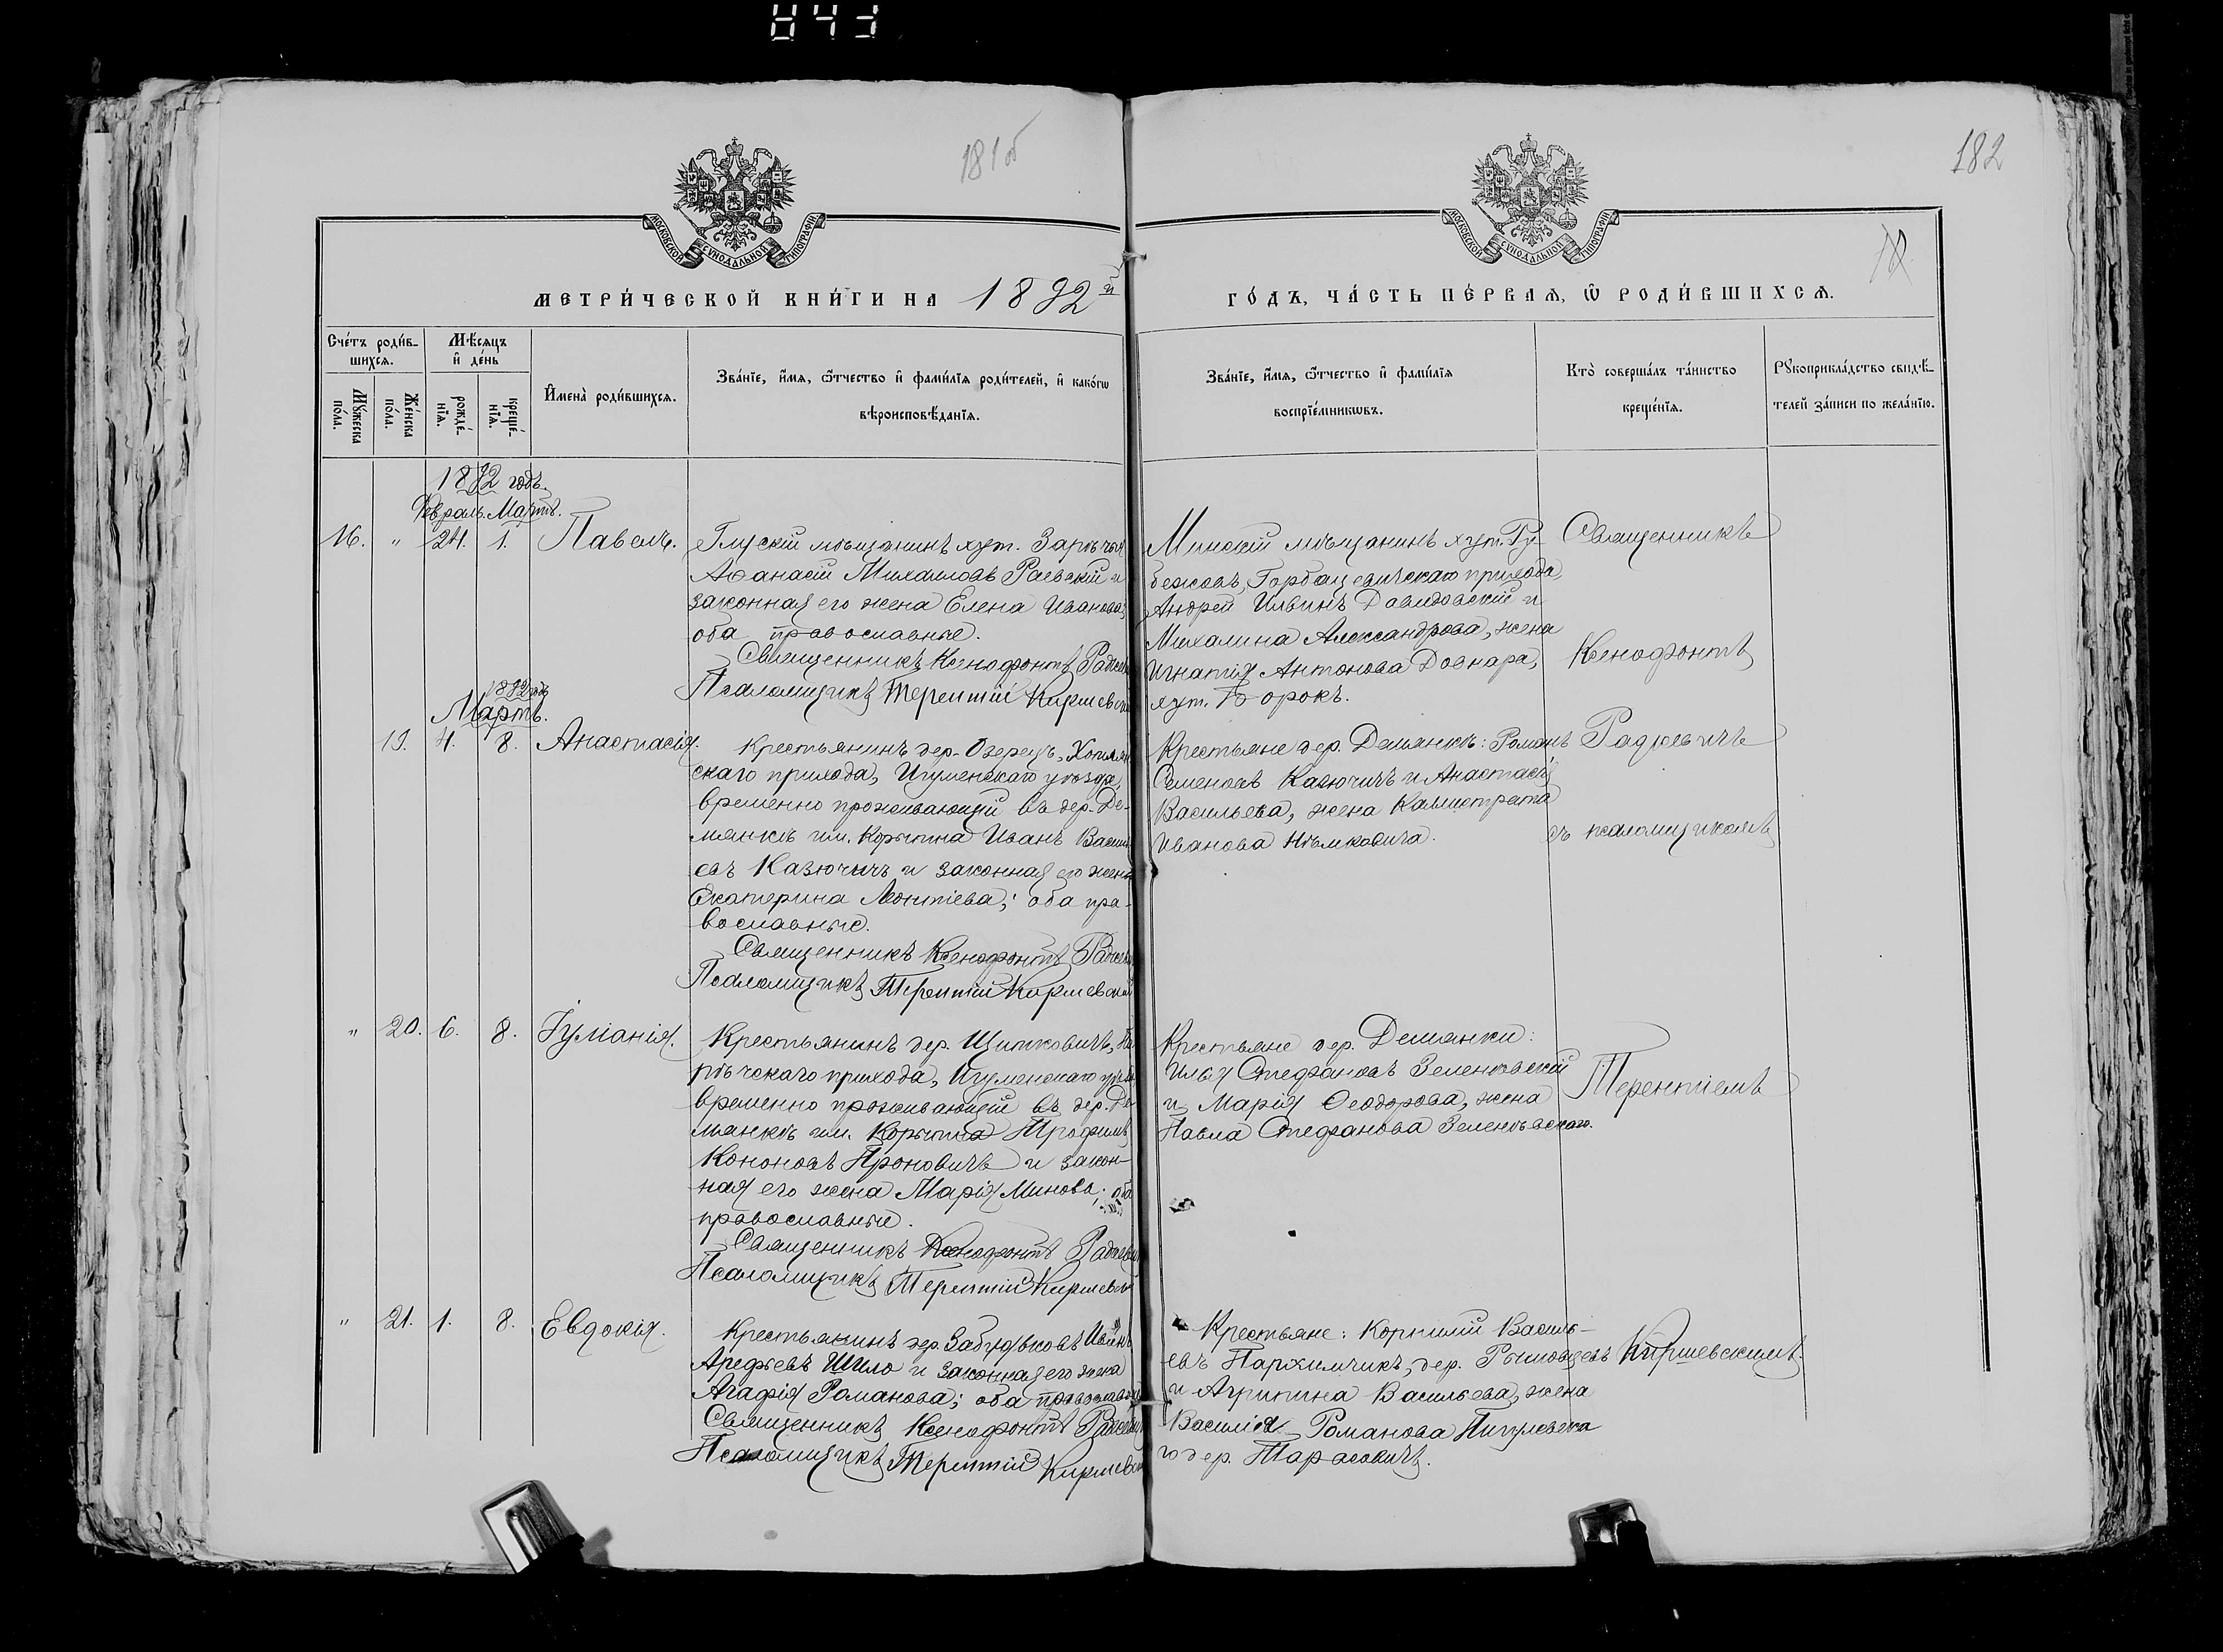 181об
182
МОСКОВСКОЙ СУНОДАЛЬНОЙ ТИПОГРАФІИ
МОСКОВСКОЙ СУНОДАЛЬНОЙ ТИПОГРАФІИ
МЕТРИ́ЧЕСКОЙ КНИ́ГИ НА 1892й
ГО́ДЪ, ЧА́СТЬ ПЕ́РВАѦ, Ѡ҆ РОДИ́ВШИХСѦ.
Сче́тъ роди́в-
шихсѧ.
Мꙋ́жеска по́ла.
Же́нска по́ла.
Мѣ́сѧцъ
и҆ де́нь
рожде́-
нїѧ.
креще́-
нїѧ.
И҆мена̀ роди́вшихсѧ.
Зва́нїе, и҆́мѧ, ѻ҆́тчество и҆ фами́лїѧ роди́телей, и҆ како́гѡ
вѣроисповѣ́данїѧ.
Зва́нїе, и҆́мѧ, ѻ҆́тчество и҆ фами́лїѧ
воспрїе́мникѡвъ.
Кто̀ соверша́лъ та́инство
креще́нїѧ.
Рꙋкоприкла́дство свидѣ́-
телей за́писи по жела́нїю.
1892 годъ.
Февраль. Мартъ.
16. " 24. 1. Павелъ.
Глускій мѣщанинъ хут. Зарѣчья
Аѳанасій Михаиловъ Раевскій и
законная его жена Елена Иванова,
оба православные.
Священникъ Ксенофонтъ
Псаломщикъ Терентій
Минскій мѣщанинъ хут. Гу-
бежовъ, Горбацевичскаго прихода,
Андрей Ильинъ Давидовскій и
Михалина Александрова, жена
Игнатія Антонова Довнара,
хут. Борокъ.
Священникъ
Ксенофонтъ
Радкевичъ
съ псаломщикомъ
Терентіемъ
Киршевскимъ.
1892 годъ
Мартъ.
19. 4. 8. Анастасія.
Крестьянинъ дер. Озерецъ,
скаго прихода, Игуменскаго уѣзда,
временно проживающій въ дер. Де-
мянкѣ им. Корытна Иванъ
евъ Казючичъ и законная его жена
Екатерина Леонтіева; оба пра-
вославные.
Священникъ Ксенофонтъ
Псаломщикъ Терентій Киршевскій
Крестьяне дер. Демянки: Романъ
Семеновъ Казючичъ и Анастасія
Васильева, жена Каллистрата
Иванова Нѣмковича.
" 20. 6. 8. Іуліанія.
Крестьянинъ дер. Щитковичъ,
рѣчскаго прихода, Игуменскаго
временно проживающій въ дер. Де-
мянкѣ им. Корытна Трофимъ
Кононовъ Ароновичъ и закон-
ная его жена Марія Минова; оба
православные.
Священникъ Ксенофонтъ
Псаломщикъ Терентій
Крестьяне дер. Демянки:
Илья Стефановъ Зеленковскій
и Марія Ѳеодорова, жена
Павла Стефанова Зеленковскаго.
" 21. 1. 8. Евдокія.
Крестьянинъ дер. Забудьковъ Иванъ
Арефьевъ Шило и законная его жена
Агафія Романова; оба
Священникъ Ксенофонтъ
Псаломщикъ Терентій
Крестьяне: Корнилій Василь-
евъ Пархимчикъ, дер.
и Агрипина Васильева, жена
Василія Романова
го дер. Тарасовичъ.